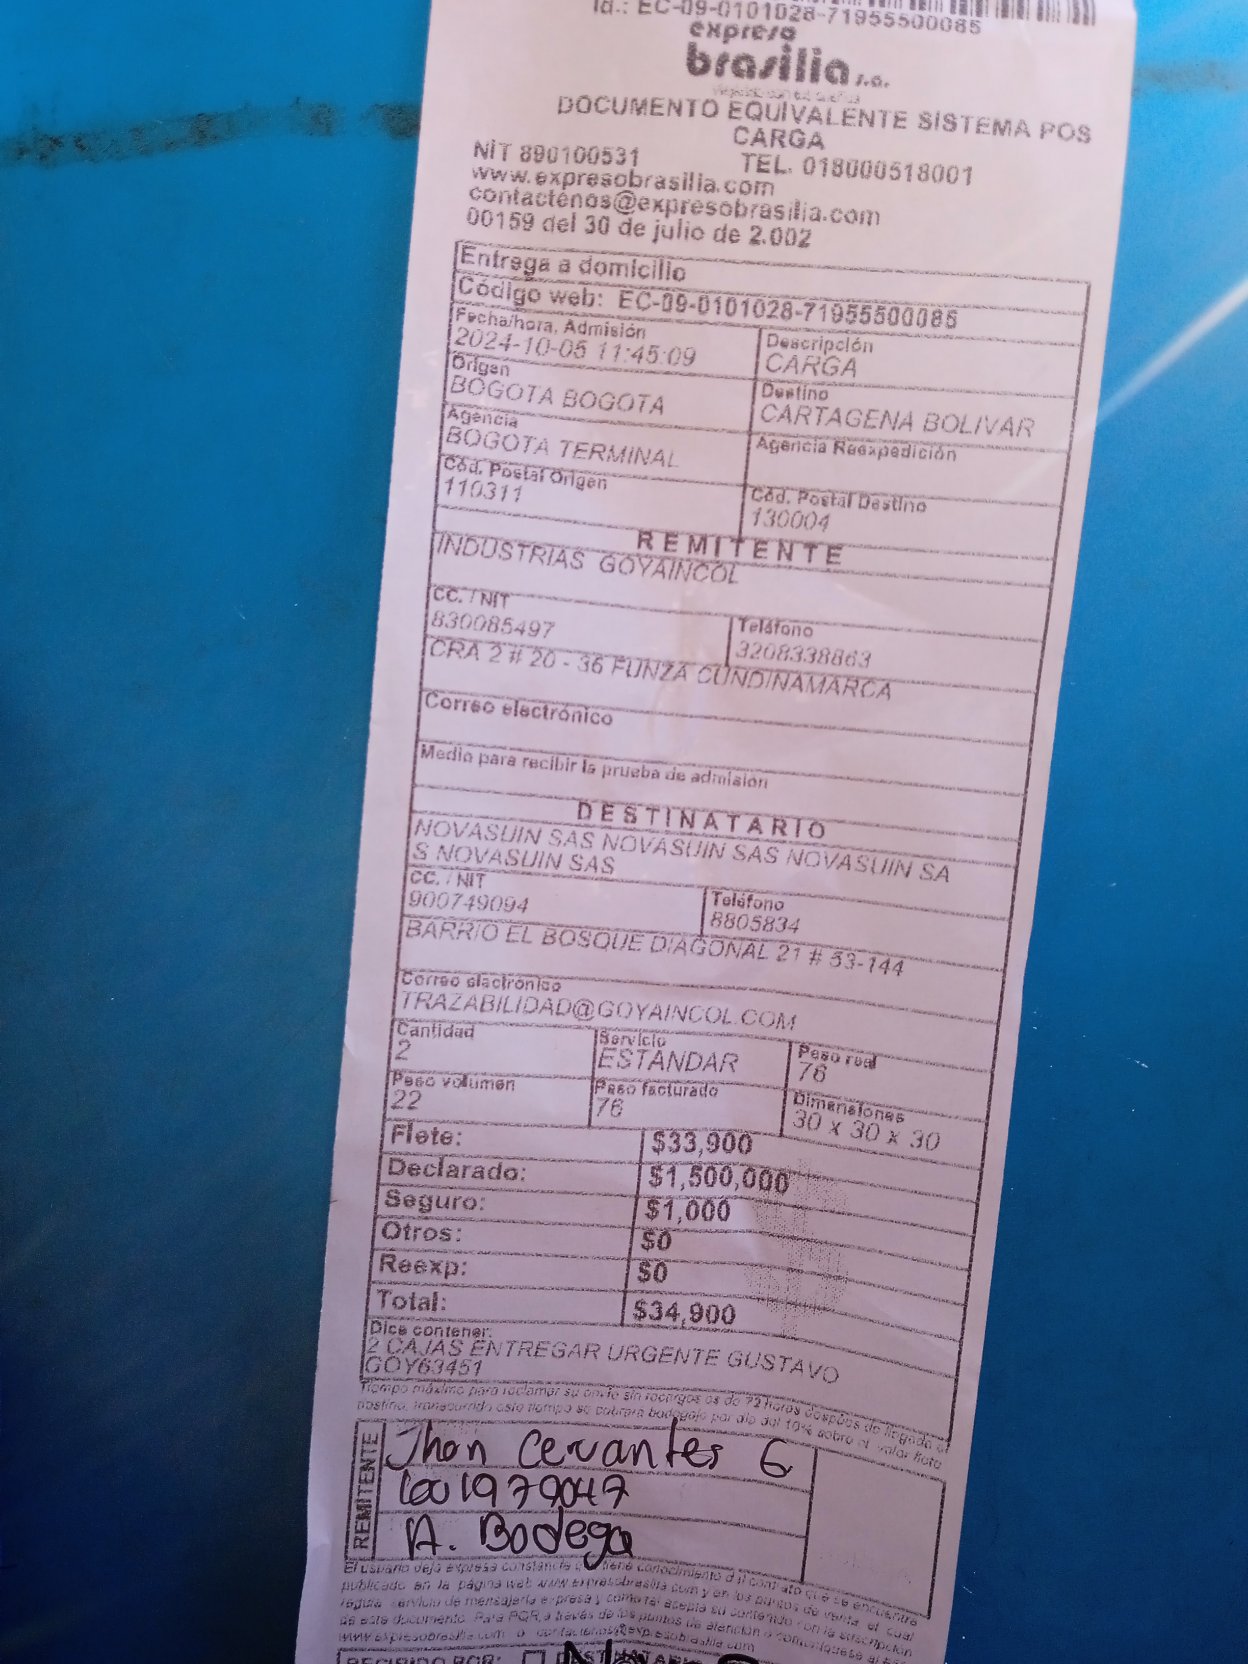 Id.: EC-09-0101028-71955500085
expreso
brasilia s.a.
DOCUMENTO EQUIVALENTE SISTEMA POS
CARGA
NIT 890100531 TEL. 018000518001
www.expresobrasilia.com
contactenos@expresobrasilia.com
00159 del 30 de julio de 2.002
Entrega a domicilio
Código web: EC-09-0101028-71955500085
Fecha/hora, Admisión Descripción
2024-10-05 11:45:09 CARGA
Origen Destino
BOGOTA BOGOTA CARTAGENA BOLIVAR
Agencia Agencia Reexpedición
BOGOTA TERMINAL
Cód. Postal Origen Cód. Postal Destino
110311 130004
REMITENTE
INDUSTRIAS GOYAINCOL
CC. / NIT Teléfono
830085497 3208338863
CRA 2 # 20 - 36 FUNZA CUNDINAMARCA
Correo electrónico
Medio para recibir la prueba de admision
DESTINATARIO
NOVASUIN SAS NOVASUIN SAS NOVASUIN SA
S NOVASUIN SAS
CC. / NIT Teléfono
900749094 8805834
BARRIO EL BOSQUE DIAGONAL 21 # 53-144
Correo electrónico
TRAZABILIDAD@GOYAINCOL.COM
Cantidad Servicio Peso real
2 ESTANDAR 76
Peso volumen Peso facturado Dimensiones
22 76 30 x 30 x 30
Flete: $33,900
Declarado: $1,500,000
Seguro: $1,000
Otros: $0
Reexp: $0
Total: $34,900
Dice contener:
2 CAJAS ENTREGAR URGENTE GUSTAVO
GOY63451
Tiempo máximo para reclamar su envío sin recargos es de 72 horas después de llegada al
destino, transcurrido este tiempo se cobrara bodegaje por dia del 10% sobre el valor flete
REMITENTE
Jhon Cervantes G
1001979047
A. Bodega
El usuario deja expresa constancia que tiene conocimiento del contrato que se encuentra
publicado en la página web www.expresobrasilia.com y en los puntos de venta, el cual
regula servicio de mensajería expresa y como tal acepta su contenido con la suscripción
de este documento. Para PQR a través de los puntos de atención o comuniquese al
www.expresobrasilia.com o contactenos@expresobrasilia.com
RECIBIDO POR: DESTINATARIO